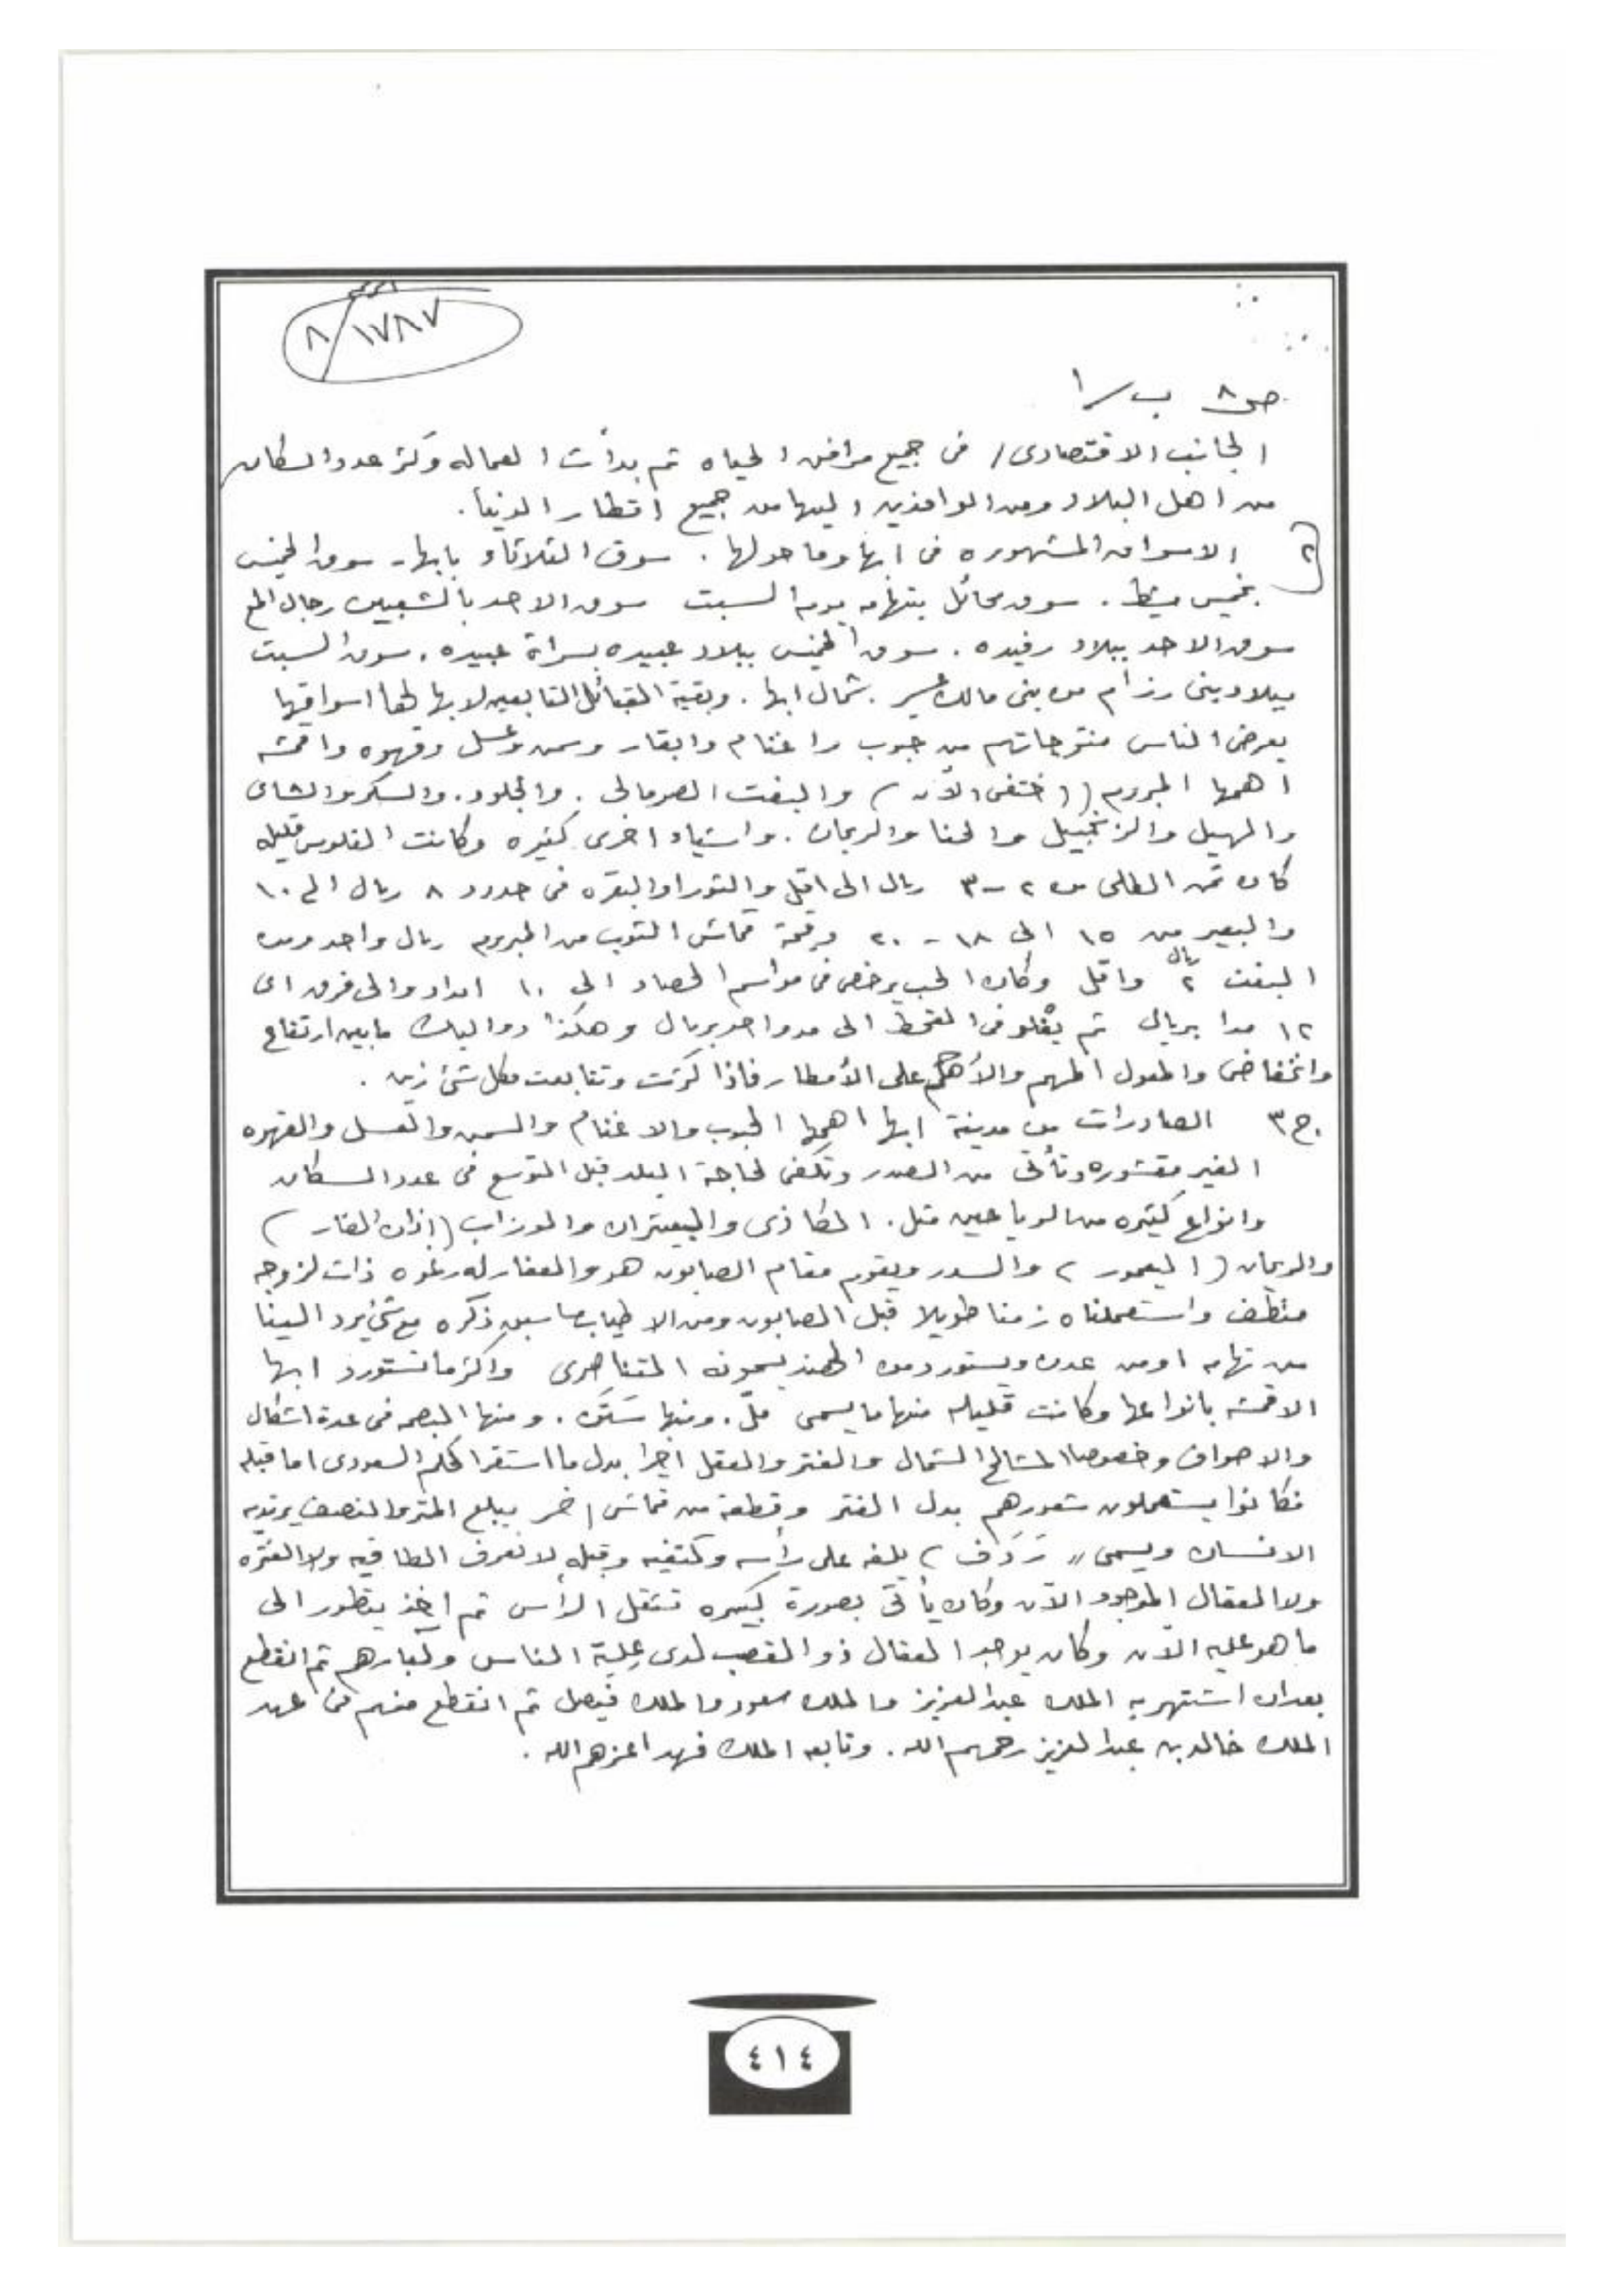 الرقم
٨/١٧٨٧
ص ٨ ب/١
الجانب الاقتصادى/ فى جميع مرافق الحياه ثم بدأت العماله وكثر عدد السكان
من اهل البلاد ومن الوافدين اليها من جميع اقطار الدنيا.
٢ الاسواق المشهوره فى ابها وما حولها . سوق الثلاثاء بابها - سوق الخميس
بخميس مشيط . سوق محائل بتهامه يوم السبت سوق الاحد بالشعبين رجال المع
سوق الاحد ببلاد رفيده . سوق الخميس ببلاد عبيده بسراة عبيده . سوق السبت
ببلاد بنى رزام من بنى مالك عسير . شمال ابها . وبقية القبائل التابعين لابها لها اسواقها
يعرض الناس منتوجاتهم من حبوب واغنام وابقار وسمن وعسل وقهوه واقمشه
اهمها المبروم ((اختفى الآن) والبفت الصومالى . والجلود . والسكر والشاى
والهيل والزنجبيل والحنا والريحان . واشياء اخرى كثيره وكانت الفلوس قليله
كان ثمن الطلى من ٢ - ٣ ريال الى اقل والثور او البقره فى حدود ٨ ريال الى ١٠
والبعير من ١٥ الى ١٨ - ٢٠ وقيمة قماش الثوب من المبروم ريال واحد ومن
البفت ٢ ريال واقل وكان الحب يرخص فى مواسم الحصاد الى ١٠ امداد والى فرق اى
١٢ مدا بريال ثم يغلو فى القحط الى مد واحد بريال وهكذا دواليك ما بين ارتفاع
وانخفاض والمعول المهم والأهم على الأمطار فاذا كثرت وتتابعت فكل شئ زين .
ج ٣ الصادرات من مدينة ابها اهمها الحبوب والاغنام والسمن والعسل والقهوه
الغير مقشوره وتأتى من الصدر وتكفى لحاجة البلد قبل التوسع فى عدد السكان
وانواع كثيره من الرياحين مثل . الكاذى والبعيثران والوزاب (اذان الفار)
والريحان (اليعمور) والسدر ويقوم مقام الصابون هو والعفار له رغوه ذات لزوجه
منظف واستعملناه زمنا طويلا قبل الصابون ومن الاطياب ما سبق ذكره مع شئ يرد الينا
من تهامه او من عدن ويستورد من الهند يسمونه القناصرى واكثر ما تستورد ابها
الاقمشه بانواعها وكانت قليله منها ما يسمى ملّ . ومنها ستكره . ومنها البصمه فى عدة اشكال
والاصواف وخصوصا المشالح الشمال والغتر والعقل اخيرا بدل ما استقر الحكم السعودى اما قبله
فكانوا يستعملون شعورهم بدل الغتر وقطعة من قماش اخر يبلغ المتر والنصف يرتديه
الانسان ويسمى " رَدَف ) يلفه على رأسه وكتفيه وقبله لا نعرف الطاقيه ولا الغتره
ولا العقال الموجود الآن وكان يأتى بصورة كبيره تثقل الرأس ثم اخذ يتطور الى
ما هو عليه الآن وكان يوجد العقال ذو القصب لدى عِلية الناس وكبارهم ثم انقطع
بعد ان اشتهر به الملك عبدالعزيز والملك سعود والملك فيصل ثم انقطع منهم فى عهد
الملك خالد بن عبدالعزيز رحمهم الله . وتابعه الملك فهد اعزهم الله .
٤١٤